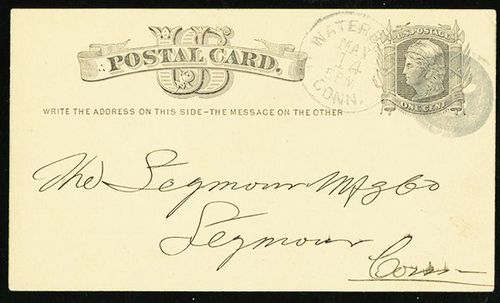 US
POSTAL CARD.
WRITE THE ADDRESS ON THIS SIDE-THE MESSAGE ON THE OTHER
MAY
14
CONN.
U.S. POSTAGE
ONE CENT
The Seymour Mfg Co
Seymour
Conn